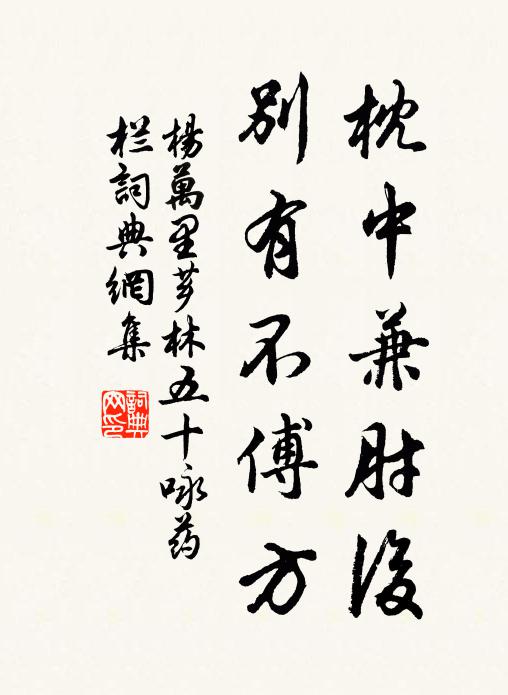 枕中兼肘後
別有不傅方
楊萬里芗林五十咏药
栏詞典網集
詞典
网印